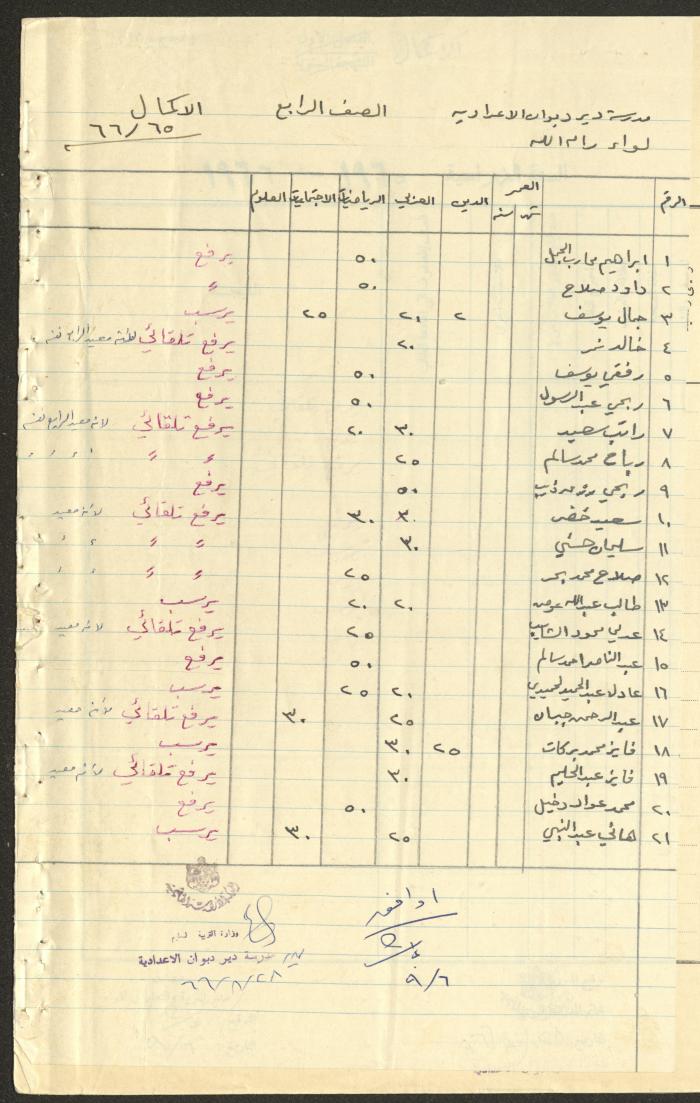 مدرسة دير دبوان الاعدادية الصف الرابع الاكمال
لواء رام الله ٦٦/٦٥
الرقم العمر الدين العربي الرياضيات الاجتماعيات العلوم
سنة
١ ابراهيم محارب ٥٠ يرفع
٢ داود صلاح ٥٠ "
٣ جمال يوسف ٢ ٢٠ ٢٥ يرسب
٤ خالد نمر ٢٠ يرفع تلقائي لانه معيد الرابع
٥ رفقي يوسف ٥٠ يرفع
٦ ربحي عبد الرسول ٥٠ يرفع
٧ راتب سعيد ٣٠ ٢٠ يرفع تلقائي لانه معيد الرابع
٨ رباح محمد سالم ٢٥ " "
٩ ربحي ٥٠ يرفع
١٠ سعيد خضر ٣٠ ٣٠ يرفع تلقائي لانه معيد
١١ سليمان حسني ٣٠ " " " "
١٢ صلاح محمد ٢٥ " " " "
١٣ طالب عبد الله عوض ٢٠ ٢٠ يرسب
١٤ عدلي محمود ٢٥ يرفع تلقائي لانه معيد
١٥ عبد الناصر احمد سالم ٥٠ يرفع
١٦ عادل عبد الحميد ٢٠ ٢٥ يرسب
١٧ عبد الرحمن ٢٥ ٣٠ يرفع تلقائي لانه معيد
١٨ فايز محمد بركات ٢٥ ٣٠ يرسب
١٩ فايز عبد الحليم ٣٠ يرفع تلقائي لانه معيد
٢٠ محمد عواد دخيل ٥٠ يرفع
٢١ هاني عبد النبي ٢٥ ٣٠ يرسب
اوافق
٩/٦
وزارة التربية والتعليم
مدير مدرسة دير دبوان الاعدادية
٦٦/٨/٢٨